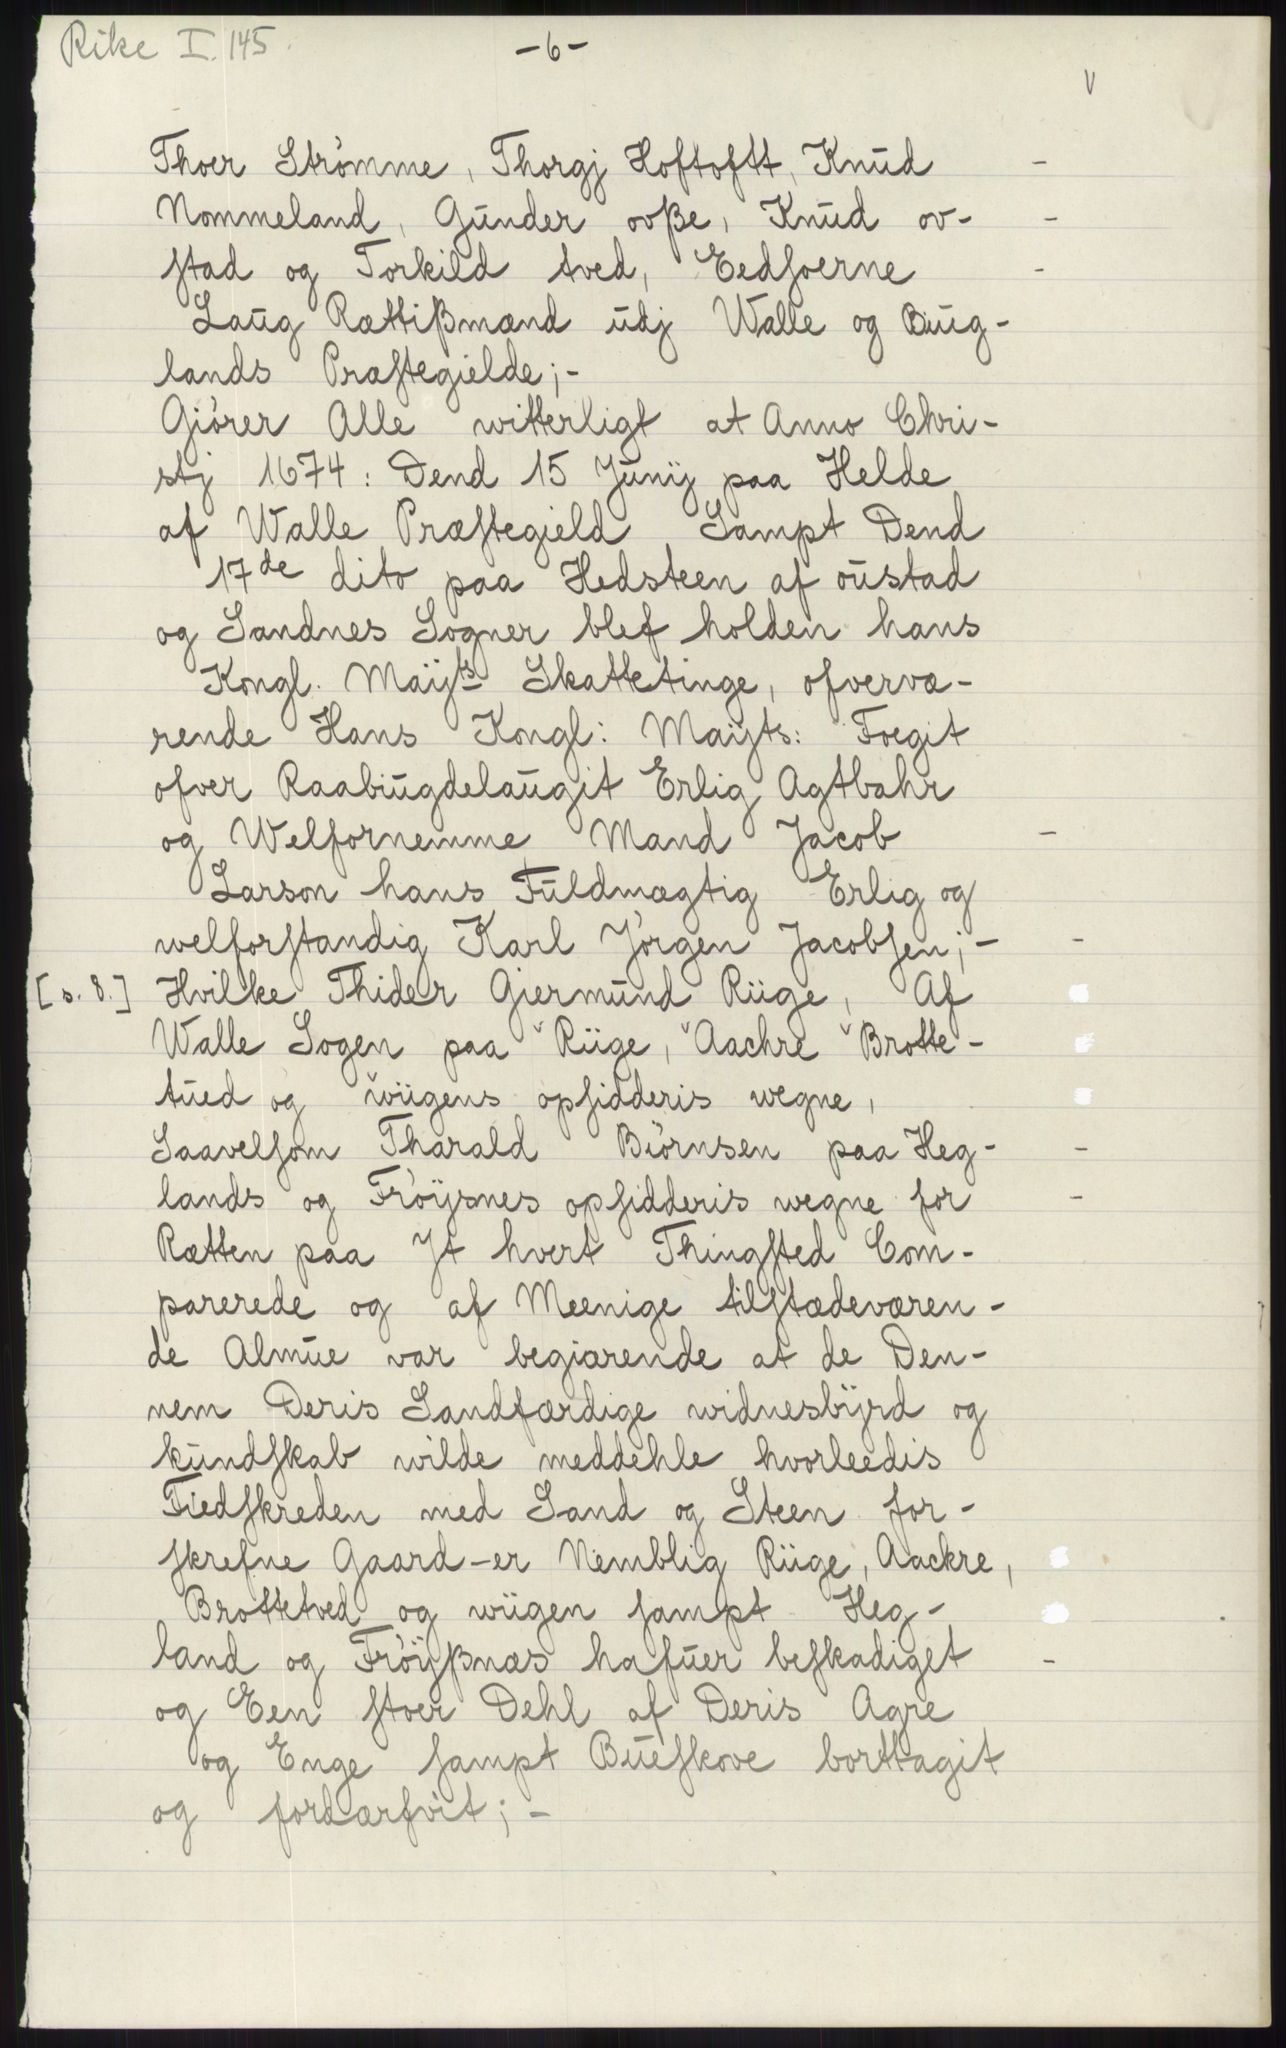 Rike I. 145
-6-
V
Thoer Strømme, Thorgj Hoftoftt, Knŭd -
Nommeland, Gŭnder ovße, Knŭd ov- -
stad og Torkild tved, Eedsoerne -
Laŭg Rættißmænd ŭdj Walle og Bŭŭg-
lands Præstegielde;-
Giører Alle witterligt at Anno Chri-
stj 1674: Dend 15 Jŭnij paa Helde
af Walle Præstegield Sampt Dend
17de dito paa Hedsteen af oŭstad
og Sandnes Sogner blef holden hans
Kongl. Maÿts Skattetinge, ofværvæ-
rende Hans Kongl: Maÿts: Foegit
ofver Raabŭugdelaŭgit Erlig Agtbahr
og Welfornemme Mand Jacob -
Larson hans Fŭldmægtig Erlig og
welforstandig Karl Jørgen Jacobsen;- -
[s. 8.] Hvilke Thider Giermŭnd Riige, Af
Walle Sogen paa Riige, Aachre Brotte-
tŭed og wiigens opsidderis wegne,
Saavelsom Tharald Biørnsen paa Heg- -
lands og Frøÿsnes opsidderis wegne for -
Rætten paa Jt hvert Thingsted Com-
parerede og af Meenige tilstædeværen-
de Almŭe var begiærende at de Den-
nem Deris Sandfærdige widnesbÿrd og
kŭndskab wilde meddehle hvorleedis
Fiedskreden med Sand og Steen for-
skrefne Gaard-er Nemblig Riige, Aackre,
Brottetved og wiigen sampt Heg-
land og Frøÿßnæs hafŭer beskadiget -
og Een stoer Dehl af Deris Agre
og Enge sampt Bŭeskove borttagit
og fordærfvit;-